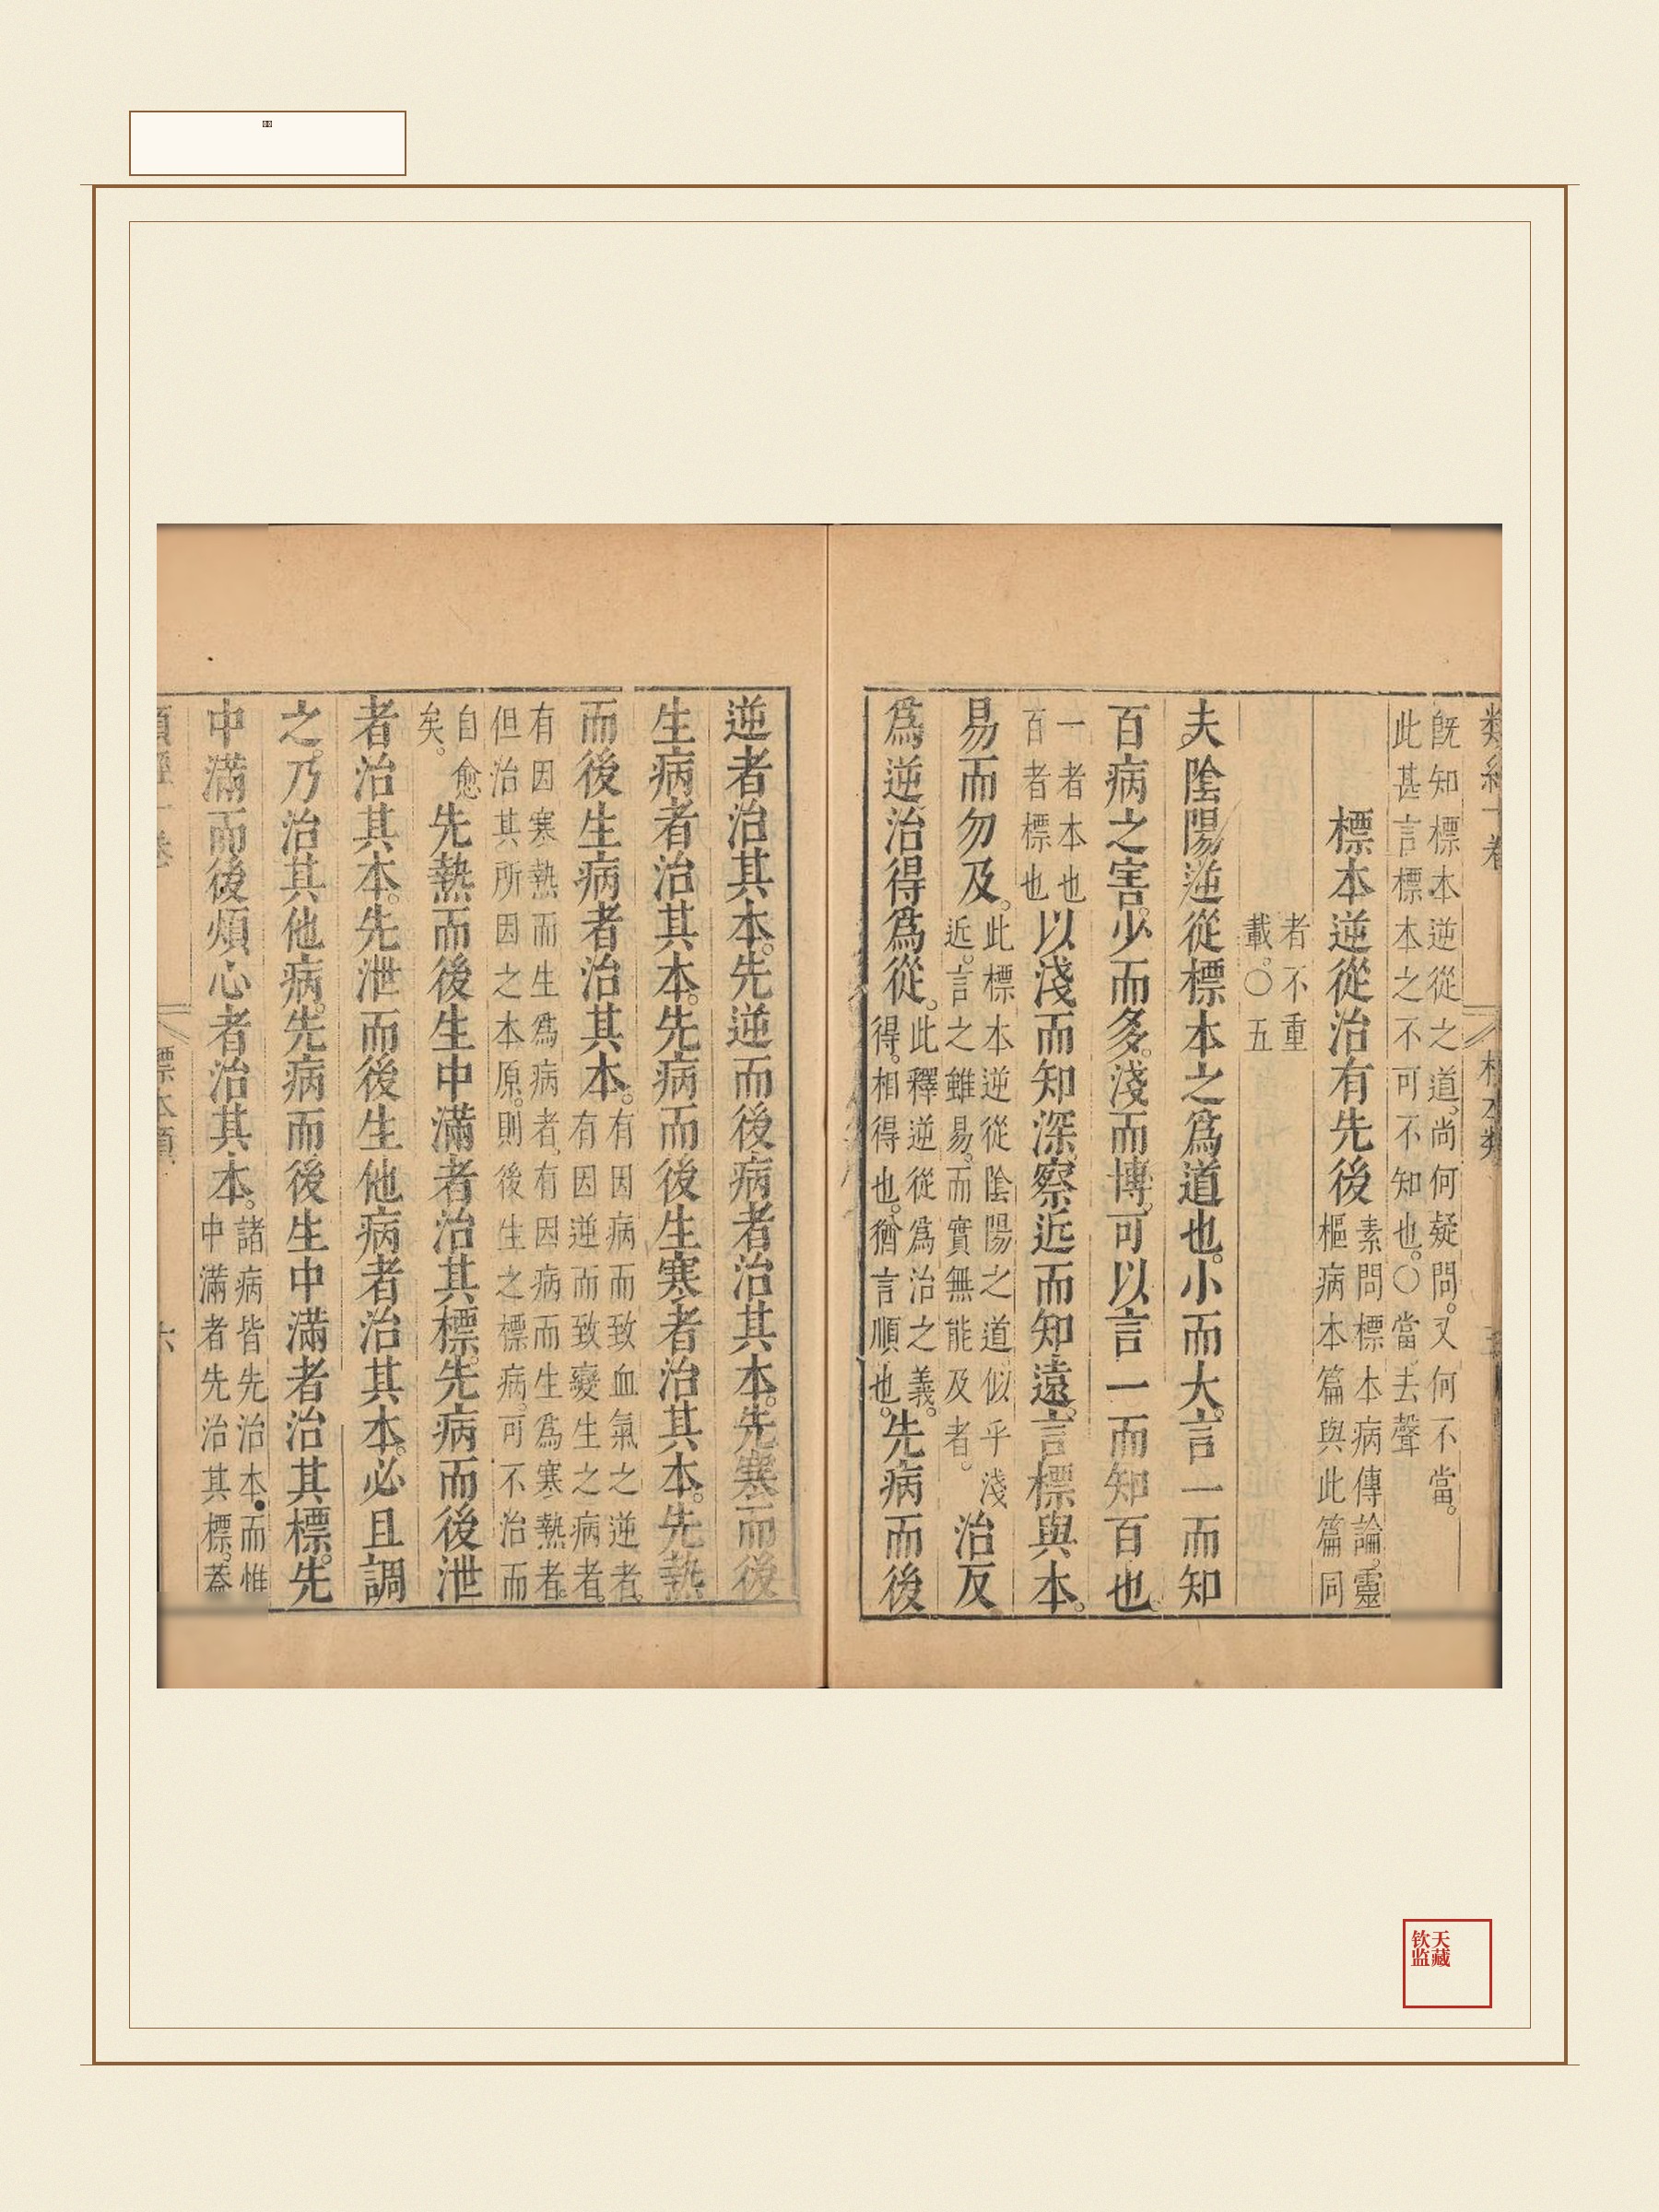 既知標本逆從之道。尚何疑問。又何不當。
此甚言標本之不可不知也。○當去聲
標本逆從治有先後
素問標本病傳論。靈
樞病本篇與此篇同
者不重
載。○五
夫陰陽逆從標本之爲道也。小而大。言一而知
百病之害。少而多。淺而博。可以言一而知百也。
一者本也
百者標也
以淺而知深。察近而知遠。言標與本。
易而勿及。
此標本逆從陰陽之道似乎淺
近。言之雖易。而實無能及者。
治反
爲逆治得爲從。
此釋逆從爲治之義。
得。相得也。猶言順也。
先病而後
逆者治其本。先逆而後病者治其本。先寒而後
生病者治其本。先病而後生寒者治其本。先熱
而後生病者治其本。
有因病而致血氣之逆者。
有因逆而致變生之病者。
有因寒熱而生爲病者。有因病而生爲寒熱者。
但治其所因之本原。則後生之標病。可不治而
自愈
矣。
先熱而後生中滿者治其標。先病而後泄
者治其本。先泄而後生他病者治其本。必且調
之。乃治其他病。先病而後生中滿者治其標。先
中滿而後煩心者治其本。
諸病皆先治本。而惟
中滿者先治其標。蓋
钦天
监藏